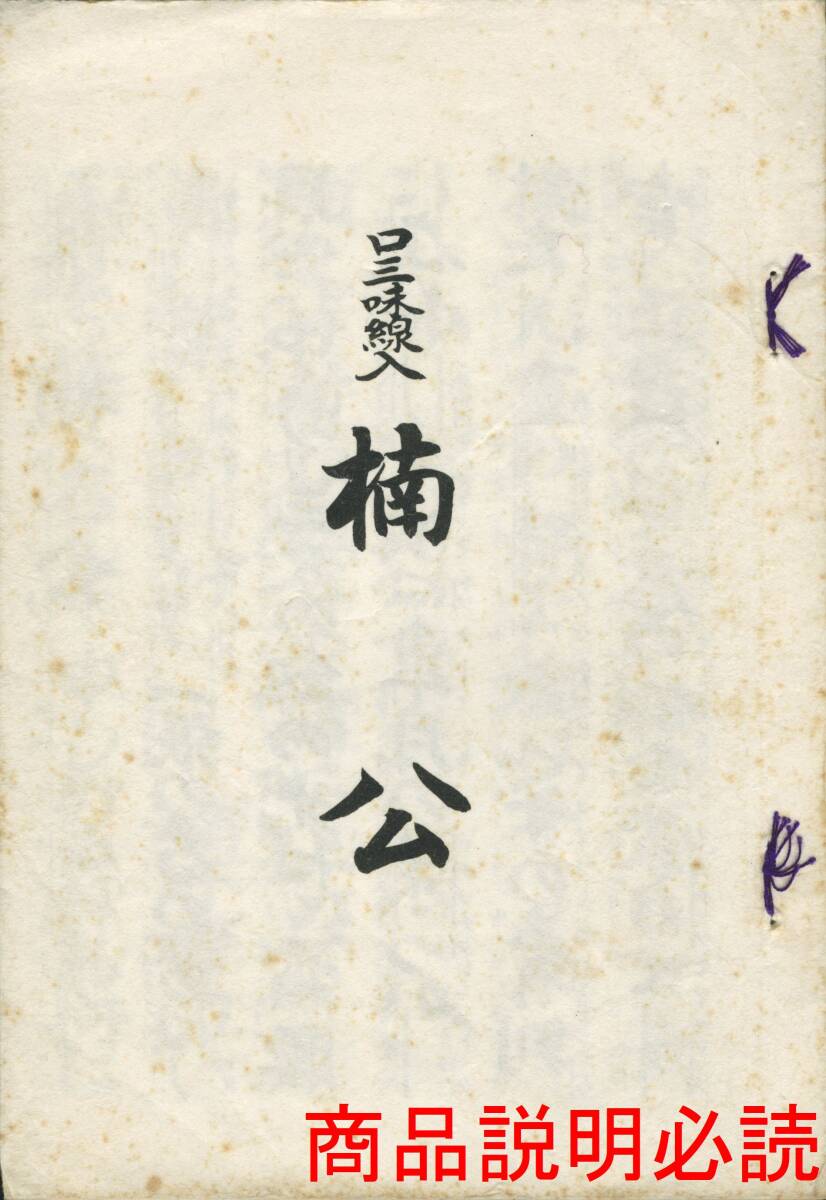 口三味線入
楠公
商品説明必読